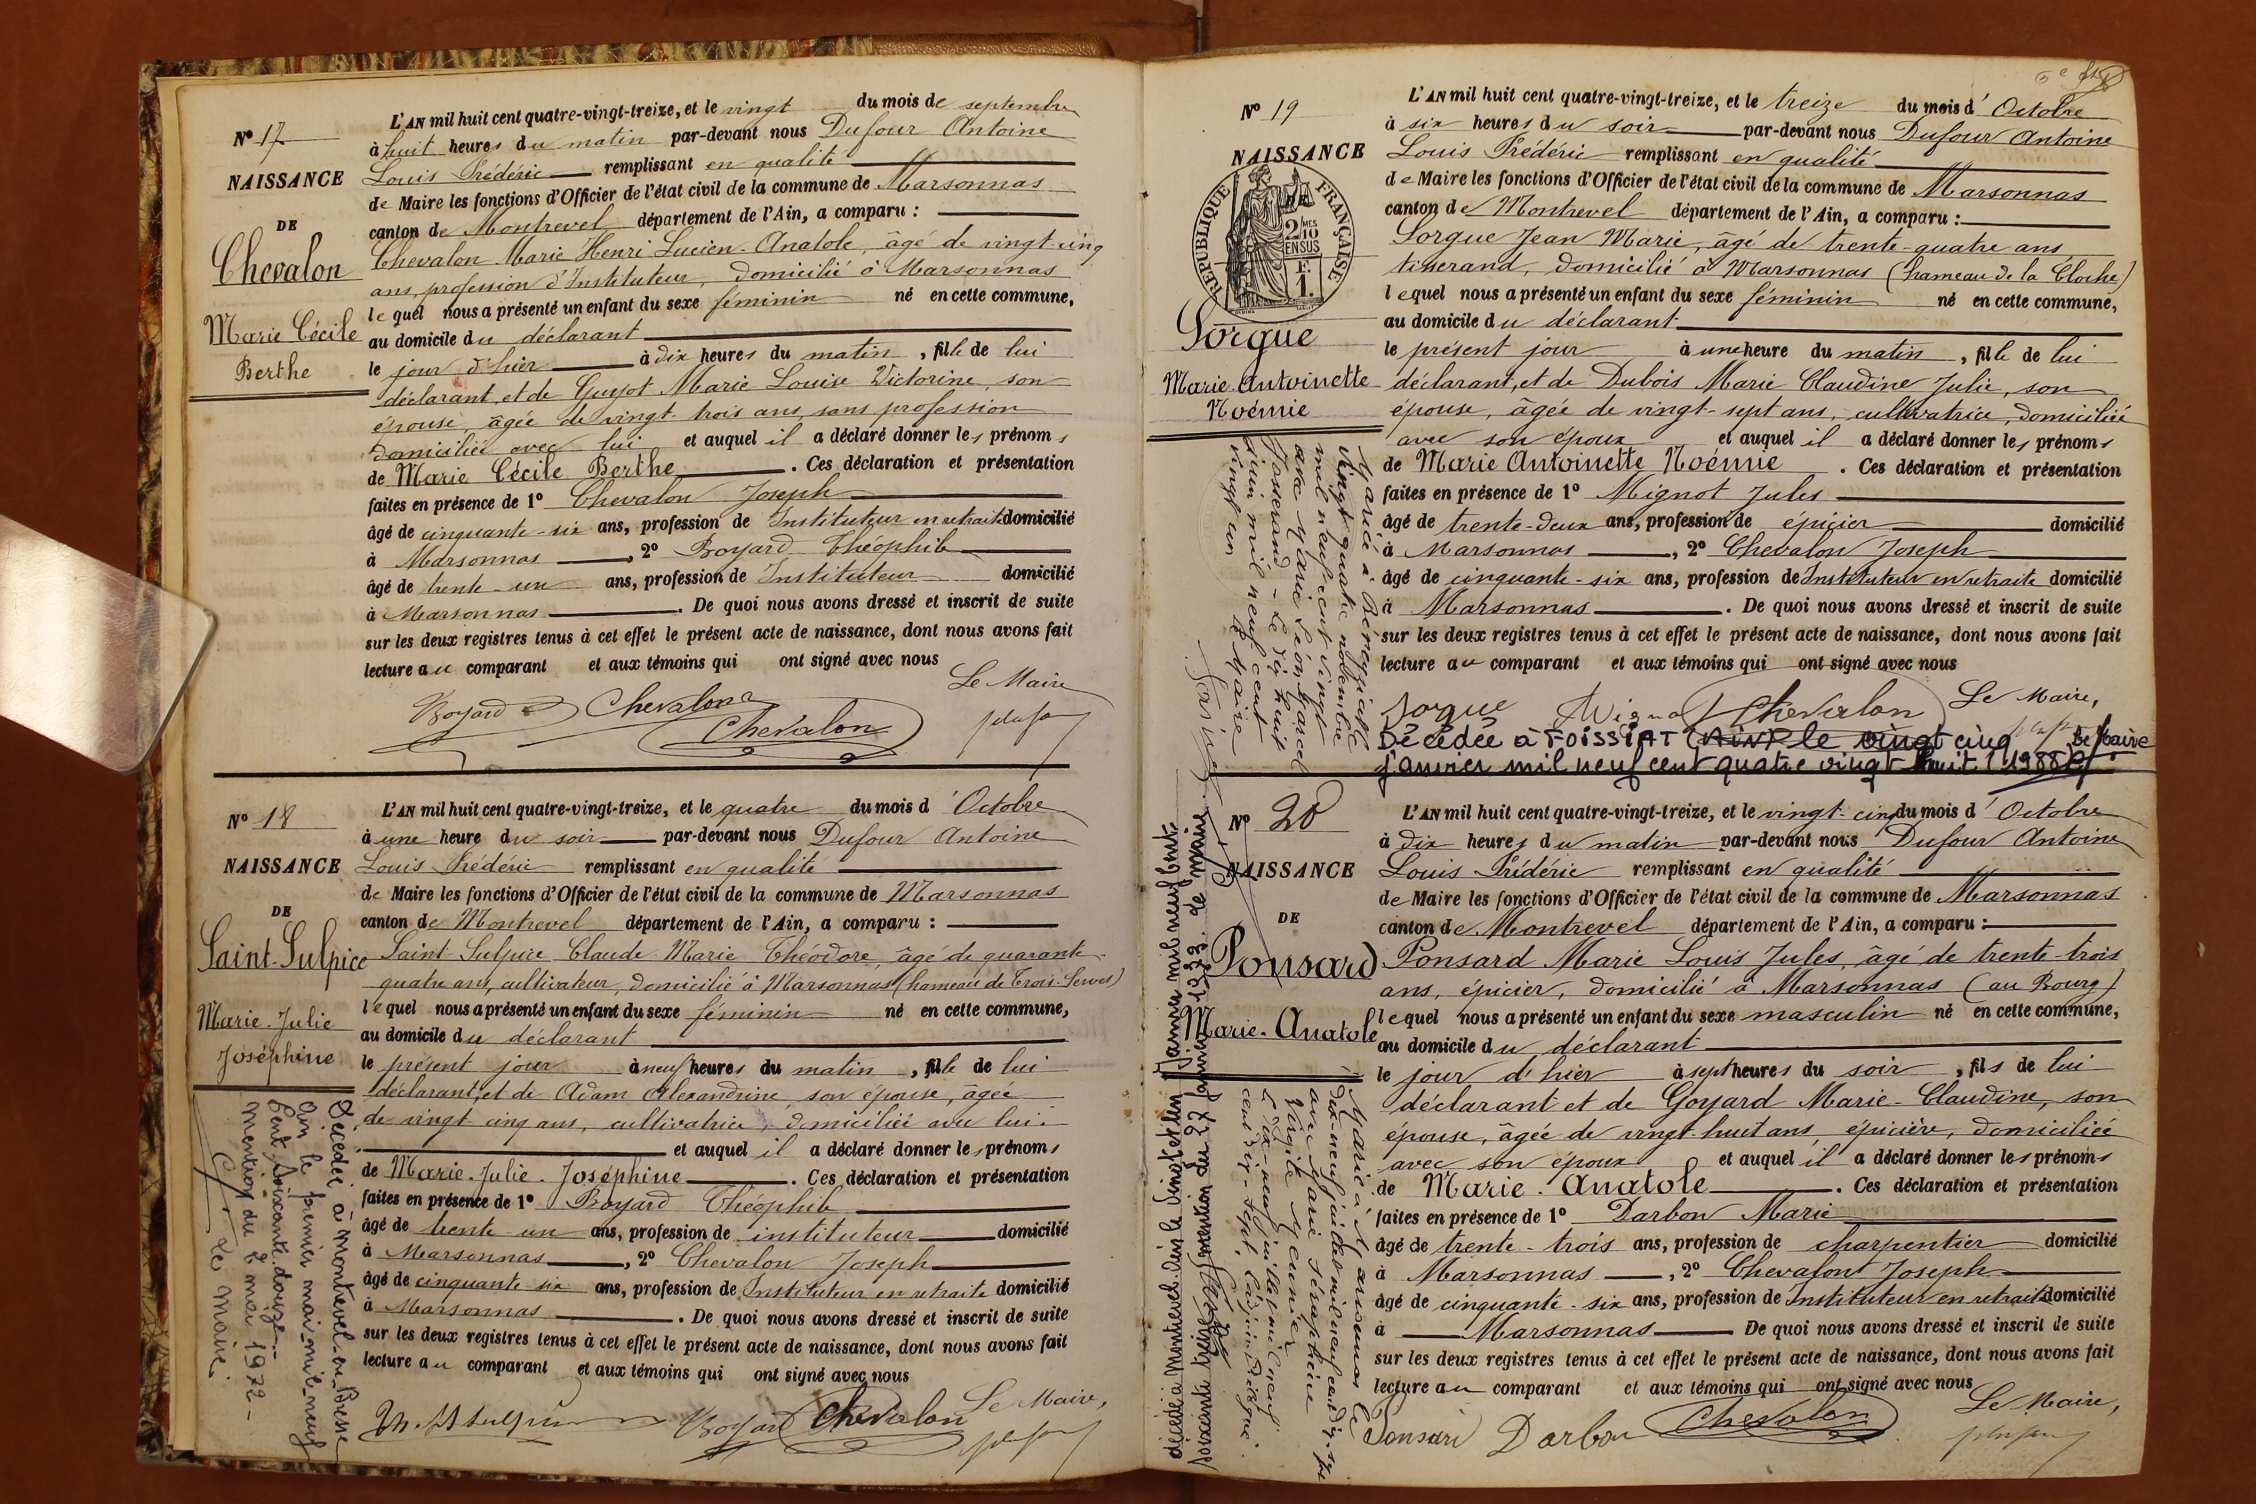 Nº 17
NAISSANCE
DE
Chevalon
Marie Cécile
Berthe
L'AN mil huit cent quatre-vingt-treize, et le vingt du mois de septembre
à huit heures du matin par-devant nous Dufour Antoine
Louis Frédéric remplissant en qualité
de Maire les fonctions d'Officier de l'état civil de la commune de Marsonnas
canton de Montrevel département de l'Ain, a comparu :
Chevalon Marie Henri Lucien Anatole, âgé de vingt-cinq
ans, profession d'Instituteur, domicilié à Marsonnas
lequel nous a présenté un enfant du sexe féminin né en cette commune,
au domicile du déclarant
le jour d'hier à dix heures du matin, fille de lui
déclarant, et de Guyot Marie Louise Victorine, son
épouse, âgée de vingt-trois ans, sans profession
domiciliée avec lui et auquel il a déclaré donner les prénoms
de Marie Cécile Berthe. Ces déclaration et présentation
faites en présence de 1º Chevalon Joseph
âgé de cinquante-six ans, profession de Instituteur en retraite domicilié
à Marsonnas, 2º Boyard Théophile
âgé de trente-un ans, profession de Instituteur domicilié
à Marsonnas. De quoi nous avons dressé et inscrit de suite
sur les deux registres tenus à cet effet le présent acte de naissance, dont nous avons fait
lecture au comparant et aux témoins qui ont signé avec nous
Le Maire
Boyard Chevalon
Chevalon
Nº 18
NAISSANCE
DE
Saint-Sulpice
Marie-Julie
Joséphine
L'AN mil huit cent quatre-vingt-treize, et le quatre du mois d'Octobre
à une heure du soir par-devant nous Dufour Antoine
Louis Frédéric remplissant en qualité
de Maire les fonctions d'Officier de l'état civil de la commune de Marsonnas
canton de Montrevel département de l'Ain, a comparu :
Saint-Sulpice Claude Marie Théodore, âgé de quarante
quatre ans, cultivateur, domicilié à Marsonnas (hameau de Trois-Serves)
lequel nous a présenté un enfant du sexe féminin né en cette commune,
au domicile du déclarant
le présent jour à neuf heures du matin, fille de lui
déclarant, et de Adam Alexandrine son épouse, âgée
de vingt cinq ans, cultivatrice, domiciliée avec lui.
et auquel il a déclaré donner les prénoms
de Marie-Julie-Joséphine. Ces déclaration et présentation
faites en présence de 1º Boyard Théophile
âgé de trente un ans, profession de instituteur domicilié
à Marsonnas, 2º Chevalon Joseph
âgé de cinquante-six ans, profession de Instituteur en retraite domicilié
à Marsonnas. De quoi nous avons dressé et inscrit de suite
sur les deux registres tenus à cet effet le présent acte de naissance, dont nous avons fait
lecture au comparant et aux témoins qui ont signé avec nous
Le Maire,
Boyard Chevalon
Décédée à Montrevel-en-Bresse
Ain le premier mai mil neuf
Cent soixante douze.
mention du 2 mai 1972
Le Maire.
Nº 19
NAISSANCE
DE
RÉPUBLIQUE FRANÇAISE
2/10 MES
EN SUS
F. 1.
Sorgue
Marie Antoinette
Noémie
L'AN mil huit cent quatre-vingt-treize, et le treize du mois d'Octobre
à six heures du soir par-devant nous Dufour Antoine
Louis Frédéric remplissant en qualité
de Maire les fonctions d'Officier de l'état civil de la commune de Marsonnas
canton de Montrevel département de l'Ain, a comparu :
Sorgue Jean Marie, âgé de trente-quatre ans
tisserand, domicilié à Marsonnas (hameau de la Cloche)
lequel nous a présenté un enfant du sexe féminin né en cette commune,
au domicile du déclarant
le présent jour à une heure du matin, fille de lui
déclarant, et de Dubois Marie Claudine Julie, son
épouse, âgée de vingt-sept ans, cultivatrice, domiciliée
avec son époux et auquel il a déclaré donner les prénoms
de Marie Antoinette Noémie. Ces déclaration et présentation
faites en présence de 1º Mignot Jules
âgé de trente-deux ans, profession de épicier domicilié
à Marsonnas, 2º Chevalon Joseph
âgé de cinquante-six ans, profession de Instituteur en retraite domicilié
à Marsonnas. De quoi nous avons dressé et inscrit de suite
sur les deux registres tenus à cet effet le présent acte de naissance, dont nous avons fait
lecture au comparant et aux témoins qui ont signé avec nous
Le Maire,
Sorgue Mignot Chevalon
Décédée à FOISSIAT (AIN) le vingt cinq
janvier mil neuf cent quatre vingt huit (1988) Le Maire
Mariée à
vingt quatre novembre
mil neuf cent vingt
avec Marie Léon Marcel
Josserand - Le dix huit
juin mil neuf cent
vingt un Le Maire
Nº 20
NAISSANCE
DE
Ponsard
Marie-Anatole
L'AN mil huit cent quatre-vingt-treize, et le vingt-cinq du mois d'Octobre
à dix heures du matin par-devant nous Dufour Antoine
Louis Frédéric remplissant en qualité
de Maire les fonctions d'Officier de l'état civil de la commune de Marsonnas
canton de Montrevel département de l'Ain, a comparu :
Ponsard Marie Louis Jules, âgé de trente-trois
ans, épicier, domicilié à Marsonnas (au Bourg)
lequel nous a présenté un enfant du sexe masculin né en cette commune,
au domicile du déclarant
le jour d'hier à sept heures du soir, fils de lui
déclarant et de Goyard Marie-Claudine, son
épouse, âgée de vingt-huit ans, épicière, domiciliée
avec son époux et auquel il a déclaré donner les prénoms
de Marie-Anatole. Ces déclaration et présentation
faites en présence de 1º Darbon Marie
âgé de trente-trois ans, profession de charpentier domicilié
à Marsonnas, 2º Chevalont Joseph
âgé de cinquante-six ans, profession de Instituteur en retraite domicilié
à Marsonnas De quoi nous avons dressé et inscrit de suite
sur les deux registres tenus à cet effet le présent acte de naissance, dont nous avons fait
lecture au comparant et aux témoins qui ont signé avec nous
Le Maire,
Ponsard Darbon Chevalon
Marié à Marsonnas le
avec Marie Séraphine
décédé à Montrevel Ain le vingt et un Janvier mil neuf cent
soixante treize mention du 22 Janvier 1973. le maire